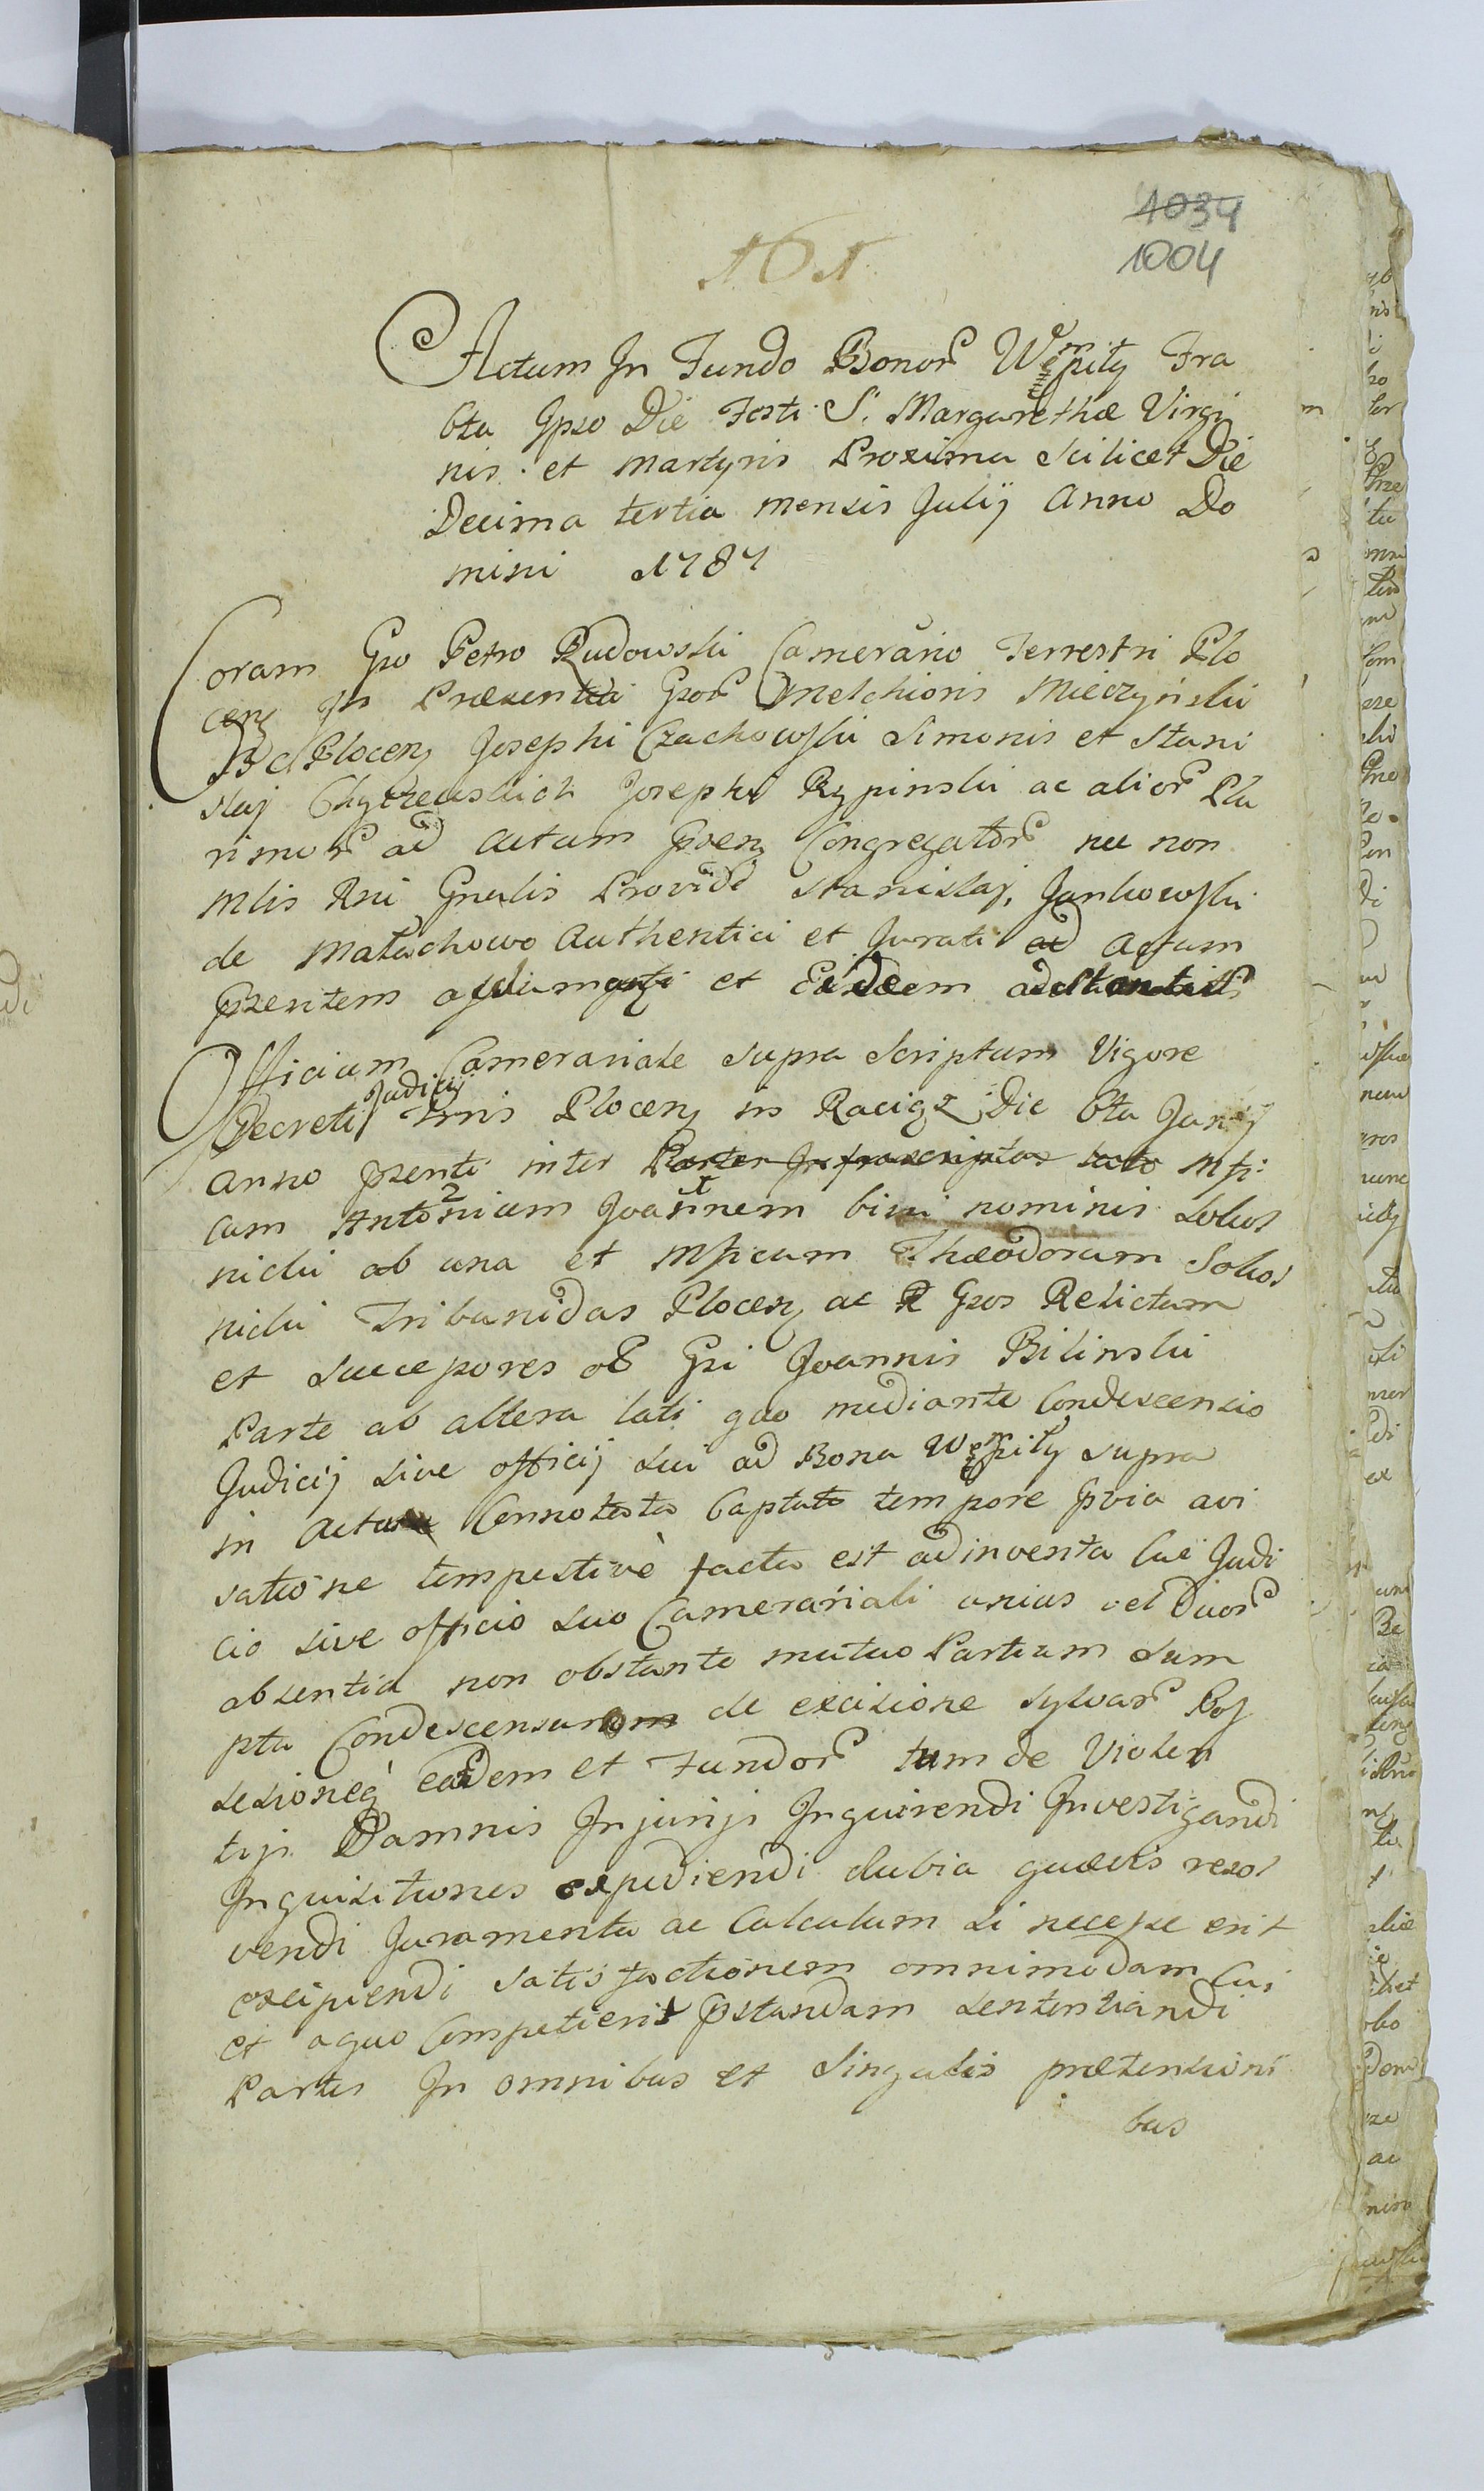 1034
1004
161
Actum In Fundo Bonor Wempity Fra
cta Ipso Die Festi S. Margarethæ Virgi
nis et Martyris Proxima Scilicet Die
Decima tertia mensis Julij Anno Do
mini 1787
Coram Gso Petro Rudowski Camerario Terrestri Plo
cen In Præsentia Gsor Melchioris Mieczyński
B C Plocen Josephi Czachowski Simonis et Stani
slaj Josephi Rypinski ac alior Plu
rimor ad actum psen Congregator nec non
Mlis Rni Gnalis Providi Stanislaj Jankowski
de Małachowo Authentici et Jurati ad actum
psentem et Eidem
Officium Camerariale supra scriptum Vigore
Decreti Judicij Trris Plocen in Raciąz Die 6ta Junij
anno psenti inter Partes Infrascriptas lato Mfi:
cum Antonium Joannem bini nominis Sokol
nicki ab una et Mficum Thæodorum Sokol
nicki Tribunidas Plocen ac R Gsos Relictam
et Successores o͠ Gsi Joannis Bilinski
Parte ab altera lati quo mediante Condescensio
Judicij sive officij sui ad Bona Wempity supra
in actu Connotata Captato tempore pvia avi
satione tempestivè facta est adinventa Cui Judi
cio sive officio suo Camerariali unius vel Duor
absentia non obstante mutuo Partium sum
ptu Condescensuro de excisione sylvar Pos
sessioneq earundem et Fundor tum de Violen
tijs Damnis Injurijs Inquirendi Investigandi
Inquisitiones expediendi dubia quævis resol
vendi Juramenta ac Calculum si necesse erit
excipiendi satisfactionem omnimodam Cui
et a quo Competierit pstandam sententiandi
Partes In omnibus et Singulis prætensioni
bus